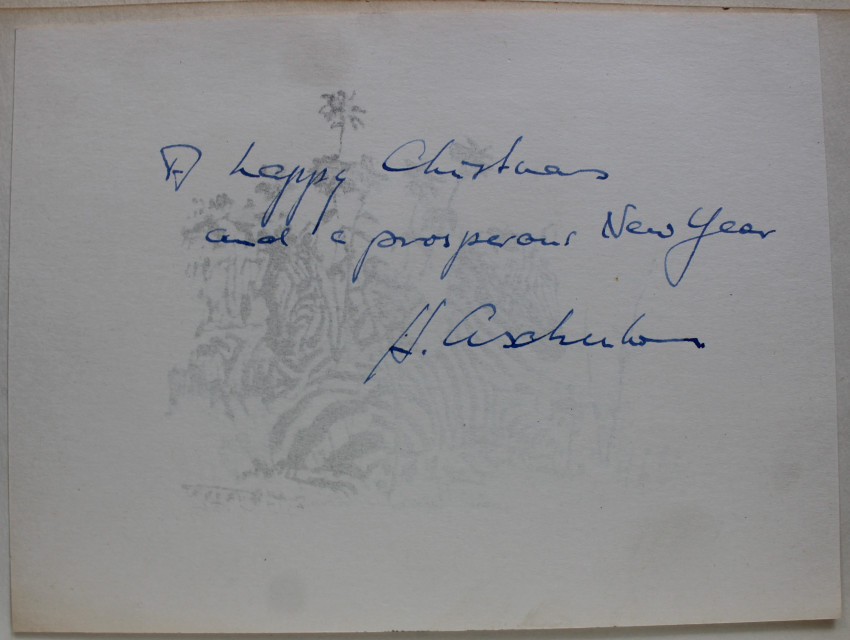 A happy Christmas
and a prosperous New Year
H. Aschenborn